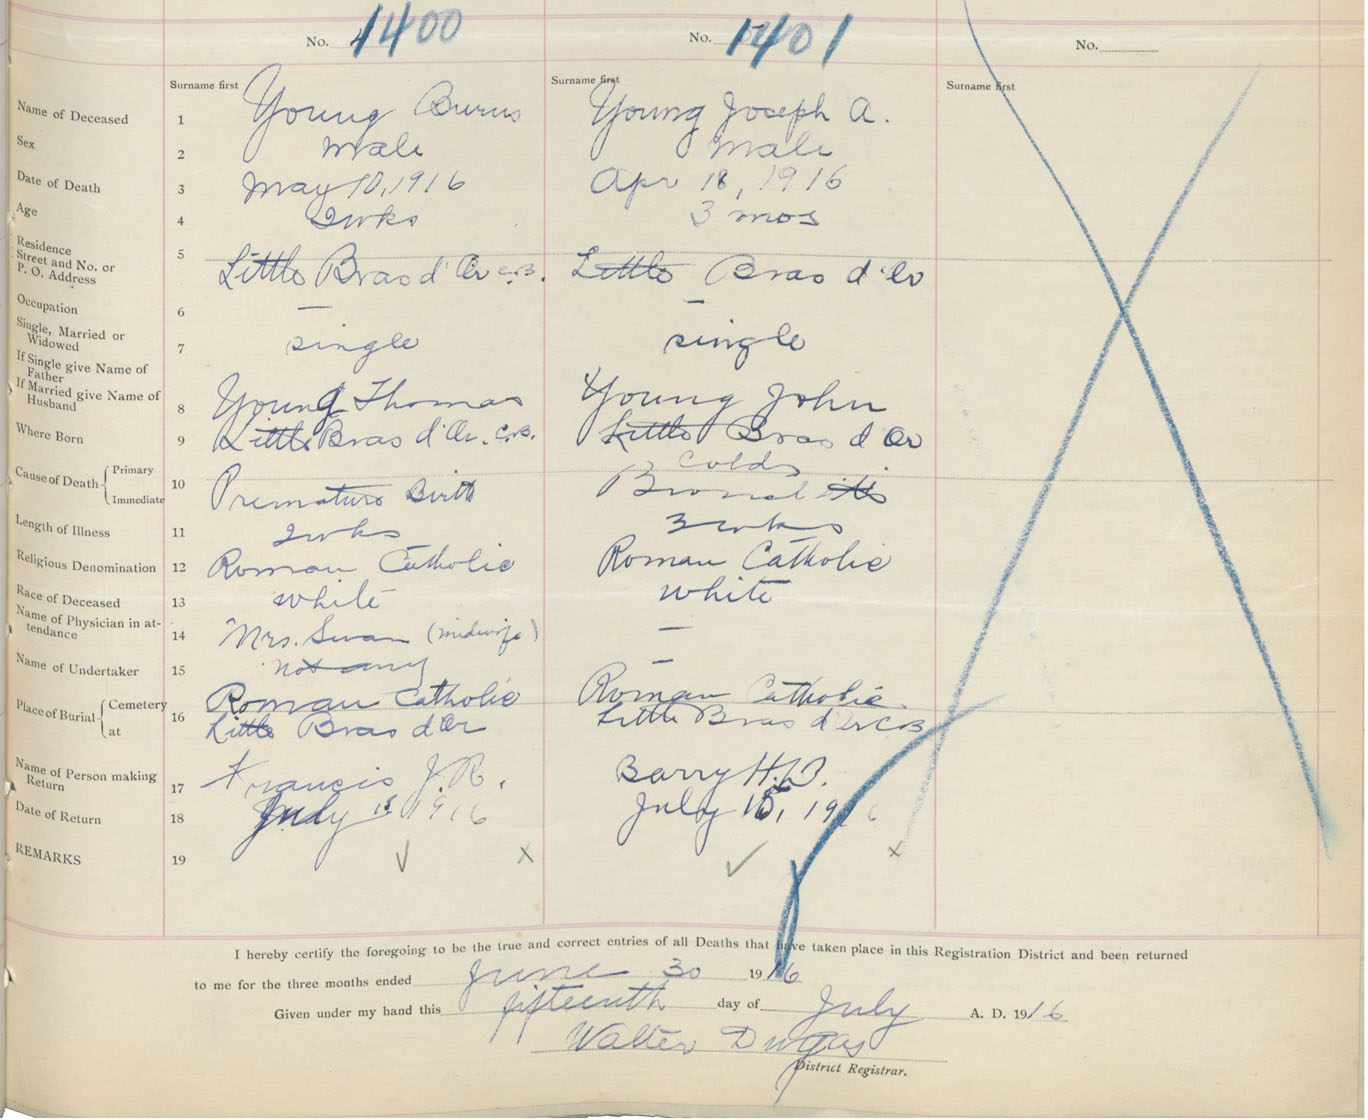 No. 1400 No. 1401 No.
Surname first Surname first Surname first
Name of Deceased 1 Young Burns Young Joseph A.
Sex 2 Male Male
Date of Death 3 May 10, 1916 Apr 18, 1916
Age 4 2 wks 3 mos
Residence
Street and No. or
P. O. Address 5 Little Bras d'Or C.B. Little Bras d'Or
Occupation 6 — —
Single, Married or
Widowed 7 single single
If Single give Name of
Father
If Married give Name of
Husband 8 Young Thomas Young John
Where Born 9 Little Bras d'Or. C.B. Little Bras d Or
Cause of Death { Primary Colds
Immediate 10 Premature Birth
Length of Illness 11 2 wks 3 wks
Religious Denomination 12 Roman Catholic Roman Catholic
Race of Deceased 13 white white
Name of Physician in at-
tendance 14 Mrs. Swan (midwife) —
Name of Undertaker 15 not any —
Place of Burial { Cemetery Roman Catholic Roman Catholic.
at 16 Little Bras d'Or Little Bras d'Or C B
Name of Person making
Return 17 Francis J. R. Barry H.
Date of Return 18 July 15 1916 July 15, 1916
REMARKS 19 √ x √ x
I hereby certify the foregoing to be the true and correct entries of all Deaths that have taken place in this Registration District and been returned
to me for the three months ended June 30 1916
Given under my hand this fifteenth day of July A. D. 1916
Walter Dugas
District Registrar.